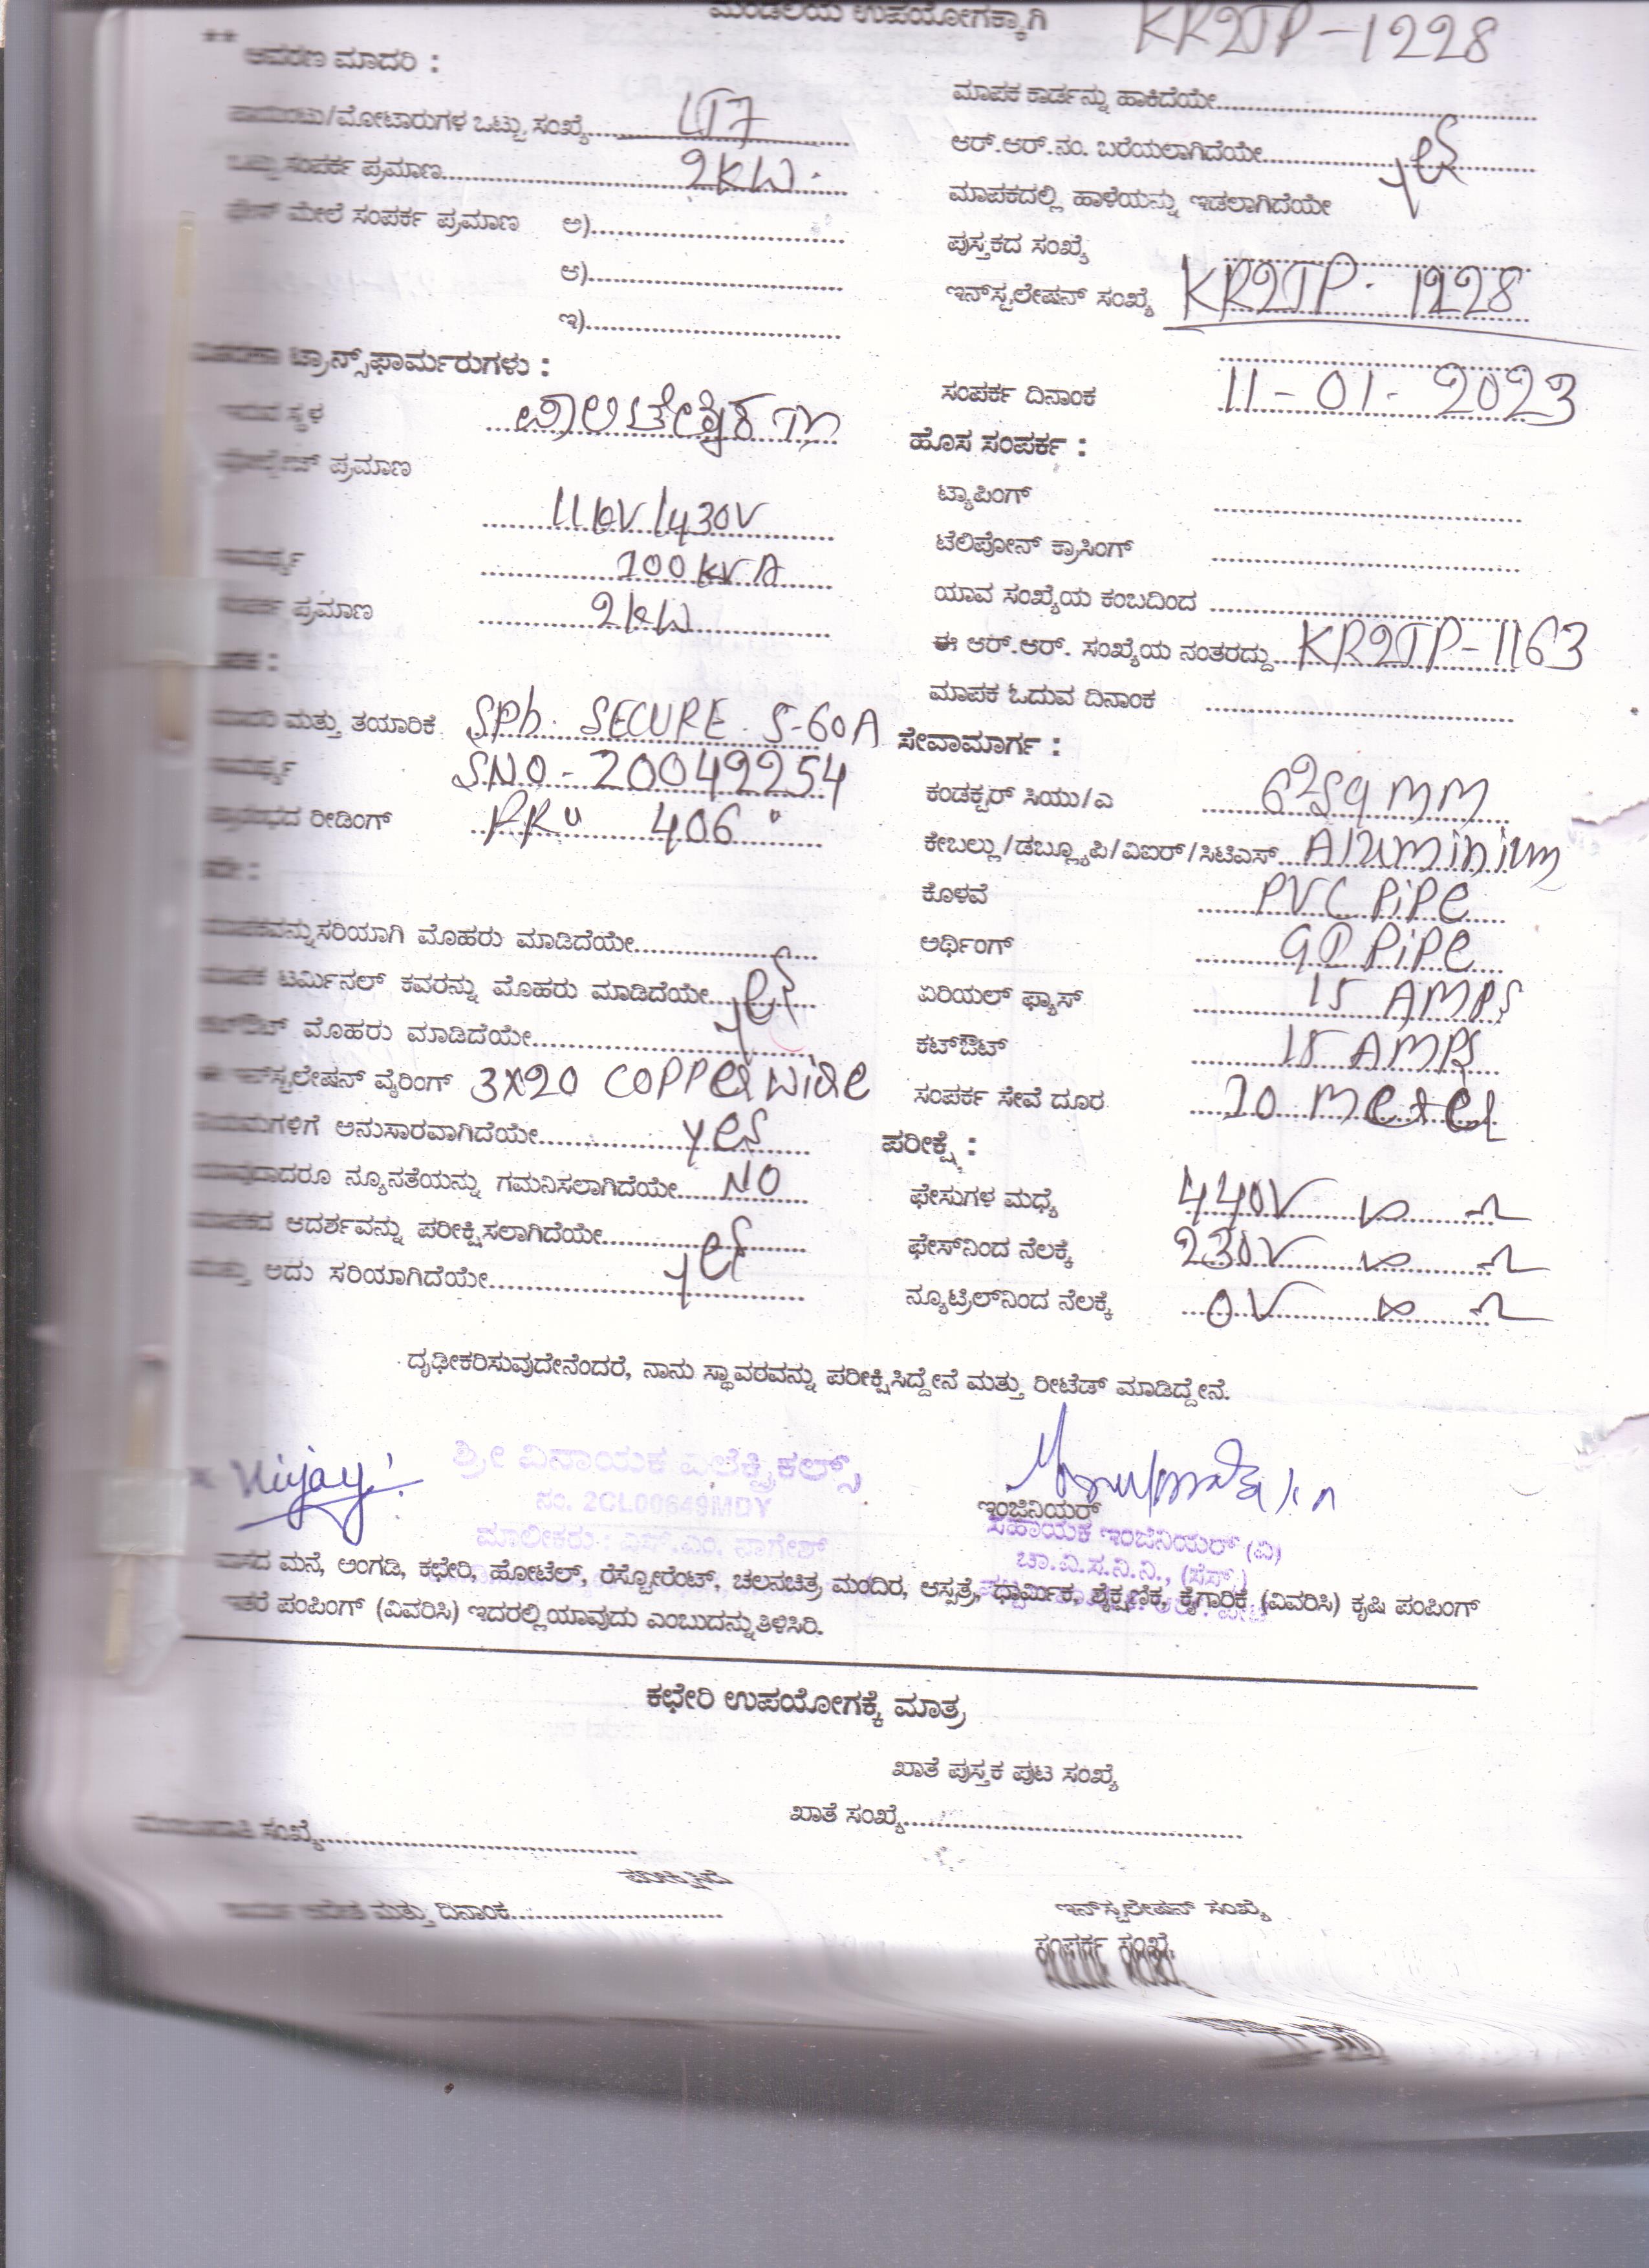 ಮಂಡಲಿಯ ಉಪಯೋಗಕ್ಕಾಗಿ KR2TP-1228
** ಆವರಣ ಮಾದರಿ :
ಪಾಯಿಂಟು/ಮೋಟಾರುಗಳ ಒಟ್ಟು ಸಂಖ್ಯೆ LT7
ಒಟ್ಟು ಸಂಪರ್ಕ ಪ್ರಮಾಣ 2KW.
ಫೇಸ್ ಮೇಲೆ ಸಂಪರ್ಕ ಪ್ರಮಾಣ ಅ)
ಆ)
ಇ)
ಟ್ರಾನ್ಸ್‌ಫಾರ್ಮರುಗಳು :
ಇರುವ ಸ್ಥಳ
ಪ್ರಮಾಣ
11kV/430V
ಸಾಮರ್ಥ್ಯ 100kVA
ಸಂಪರ್ಕ ಪ್ರಮಾಣ 2kW
ಮಾದರಿ ಮತ್ತು ತಯಾರಿಕೆ SPh. SECURE. 5-60A
ಸಾಮರ್ಥ್ಯ SNO-20042254
ರೀಡಿಂಗ್ 406
ಮಾಪಕವನ್ನು ಸರಿಯಾಗಿ ಮೊಹರು ಮಾಡಿದೆಯೇ
ಮಾಪಕ ಟರ್ಮಿನಲ್ ಕವರನ್ನು ಮೊಹರು ಮಾಡಿದೆಯೇ yes
ಕಟ್‌ಔಟ್ ಮೊಹರು ಮಾಡಿದೆಯೇ
ಈ ಇನ್‌ಸ್ಟಲೇಷನ್ ವೈರಿಂಗ್ 3X20 COPPER wire
ನಿಯಮಗಳಿಗೆ ಅನುಸಾರವಾಗಿದೆಯೇ yes
ಯಾವುದಾದರೂ ನ್ಯೂನತೆಯನ್ನು ಗಮನಿಸಲಾಗಿದೆಯೇ NO
ಮಾಪಕದ ಆದರ್ಶವನ್ನು ಪರೀಕ್ಷಿಸಲಾಗಿದೆಯೇ
ಮತ್ತು ಅದು ಸರಿಯಾಗಿದೆಯೇ yes
ಮಾಪಕ ಕಾರ್ಡನ್ನು ಹಾಕಿದೆಯೇ
ಆರ್.ಆರ್.ನಂ. ಬರೆಯಲಾಗಿದೆಯೇ yes
ಮಾಪಕದಲ್ಲಿ ಹಾಳೆಯನ್ನು ಇಡಲಾಗಿದೆಯೇ
ಪುಸ್ತಕದ ಸಂಖ್ಯೆ
ಇನ್‌ಸ್ಟಲೇಷನ್ ಸಂಖ್ಯೆ KR2TP. 1228
ಸಂಪರ್ಕ ದಿನಾಂಕ 11-01-2023
ಹೊಸ ಸಂಪರ್ಕ :
ಟ್ಯಾಪಿಂಗ್
ಟೆಲಿಪೋನ್ ಕ್ರಾಸಿಂಗ್
ಯಾವ ಸಂಖ್ಯೆಯ ಕಂಬದಿಂದ
ಈ ಆರ್.ಆರ್. ಸಂಖ್ಯೆಯ ನಂತರದ್ದು KR2TP-1163
ಮಾಪಕ ಓದುವ ದಿನಾಂಕ
ಸೇವಾಮಾರ್ಗ :
ಕಂಡಕ್ಟರ್ ಸಿಯು/ಎ sqmm
ಕೇಬಲ್ಲು/ಡಬ್ಲ್ಯೂಪಿ/ವಿಐರ್/ಸಿಟಿಎಸ್ Aluminium
ಕೊಳವೆ PVC PiPe
ಅರ್ಥಿಂಗ್ GI PiPe
ಏರಿಯಲ್ ಫ್ಯಾಸ್ 15 AMPS
ಕಟ್‌ಔಟ್ 15 AMPS
ಸಂಪರ್ಕ ಸೇವೆ ದೂರ 10 meter
ಪರೀಕ್ಷೆ :
ಫೇಸುಗಳ ಮಧ್ಯೆ 440V ∞ Ω
ಫೇಸ್‌ನಿಂದ ನೆಲಕ್ಕೆ 230V ∞ Ω
ನ್ಯೂಟ್ರಿಲ್‌ನಿಂದ ನೆಲಕ್ಕೆ 0V ∞ Ω
ದೃಢೀಕರಿಸುವುದೇನೆಂದರೆ, ನಾನು ಸ್ಥಾವರವನ್ನು ಪರೀಕ್ಷಿಸಿದ್ದೇನೆ ಮತ್ತು ರೀಟೆಡ್ ಮಾಡಿದ್ದೇನೆ.
Vijay
ಶ್ರೀ ವಿನಾಯಕ ಎಲೆಕ್ಟ್ರಿಕಲ್ಸ್
ನಂ. 2CL00649MDY
ಮಾಲೀಕರು : ಎಸ್.ಎಂ. ನಾಗೇಶ್
ಇಂಜಿನಿಯರ್
ಸಹಾಯಕ ಇಂಜಿನಿಯರ್ (ವಿ)
ಚಾ.ವಿ.ಸ.ನಿ.ನಿ.,
ವಾಸದ ಮನೆ, ಅಂಗಡಿ, ಕಛೇರಿ, ಹೋಟೆಲ್, ರೆಸ್ಟೋರೆಂಟ್, ಚಲನಚಿತ್ರ ಮಂದಿರ, ಆಸ್ಪತ್ರೆ, ಧಾರ್ಮಿಕ, ಶೈಕ್ಷಣಿಕ, ಕೈಗಾರಿಕೆ (ವಿವರಿಸಿ) ಕೃಷಿ ಪಂಪಿಂಗ್
ಇತರೆ ಪಂಪಿಂಗ್ (ವಿವರಿಸಿ) ಇದರಲ್ಲಿ ಯಾವುದು ಎಂಬುದನ್ನು ತಿಳಿಸಿರಿ.
ಕಛೇರಿ ಉಪಯೋಗಕ್ಕೆ ಮಾತ್ರ
ಖಾತೆ ಪುಸ್ತಕ ಪುಟ ಸಂಖ್ಯೆ
ಸಂಖ್ಯೆ
ಖಾತೆ ಸಂಖ್ಯೆ
ಪರೀಕ್ಷಿಸಿದೆ
ಮತ್ತು ದಿನಾಂಕ
ಇನ್‌ಸ್ಟಲೇಷನ್ ಸಂಖ್ಯೆ
ಸಂಪರ್ಕ ಸಂಖ್ಯೆ